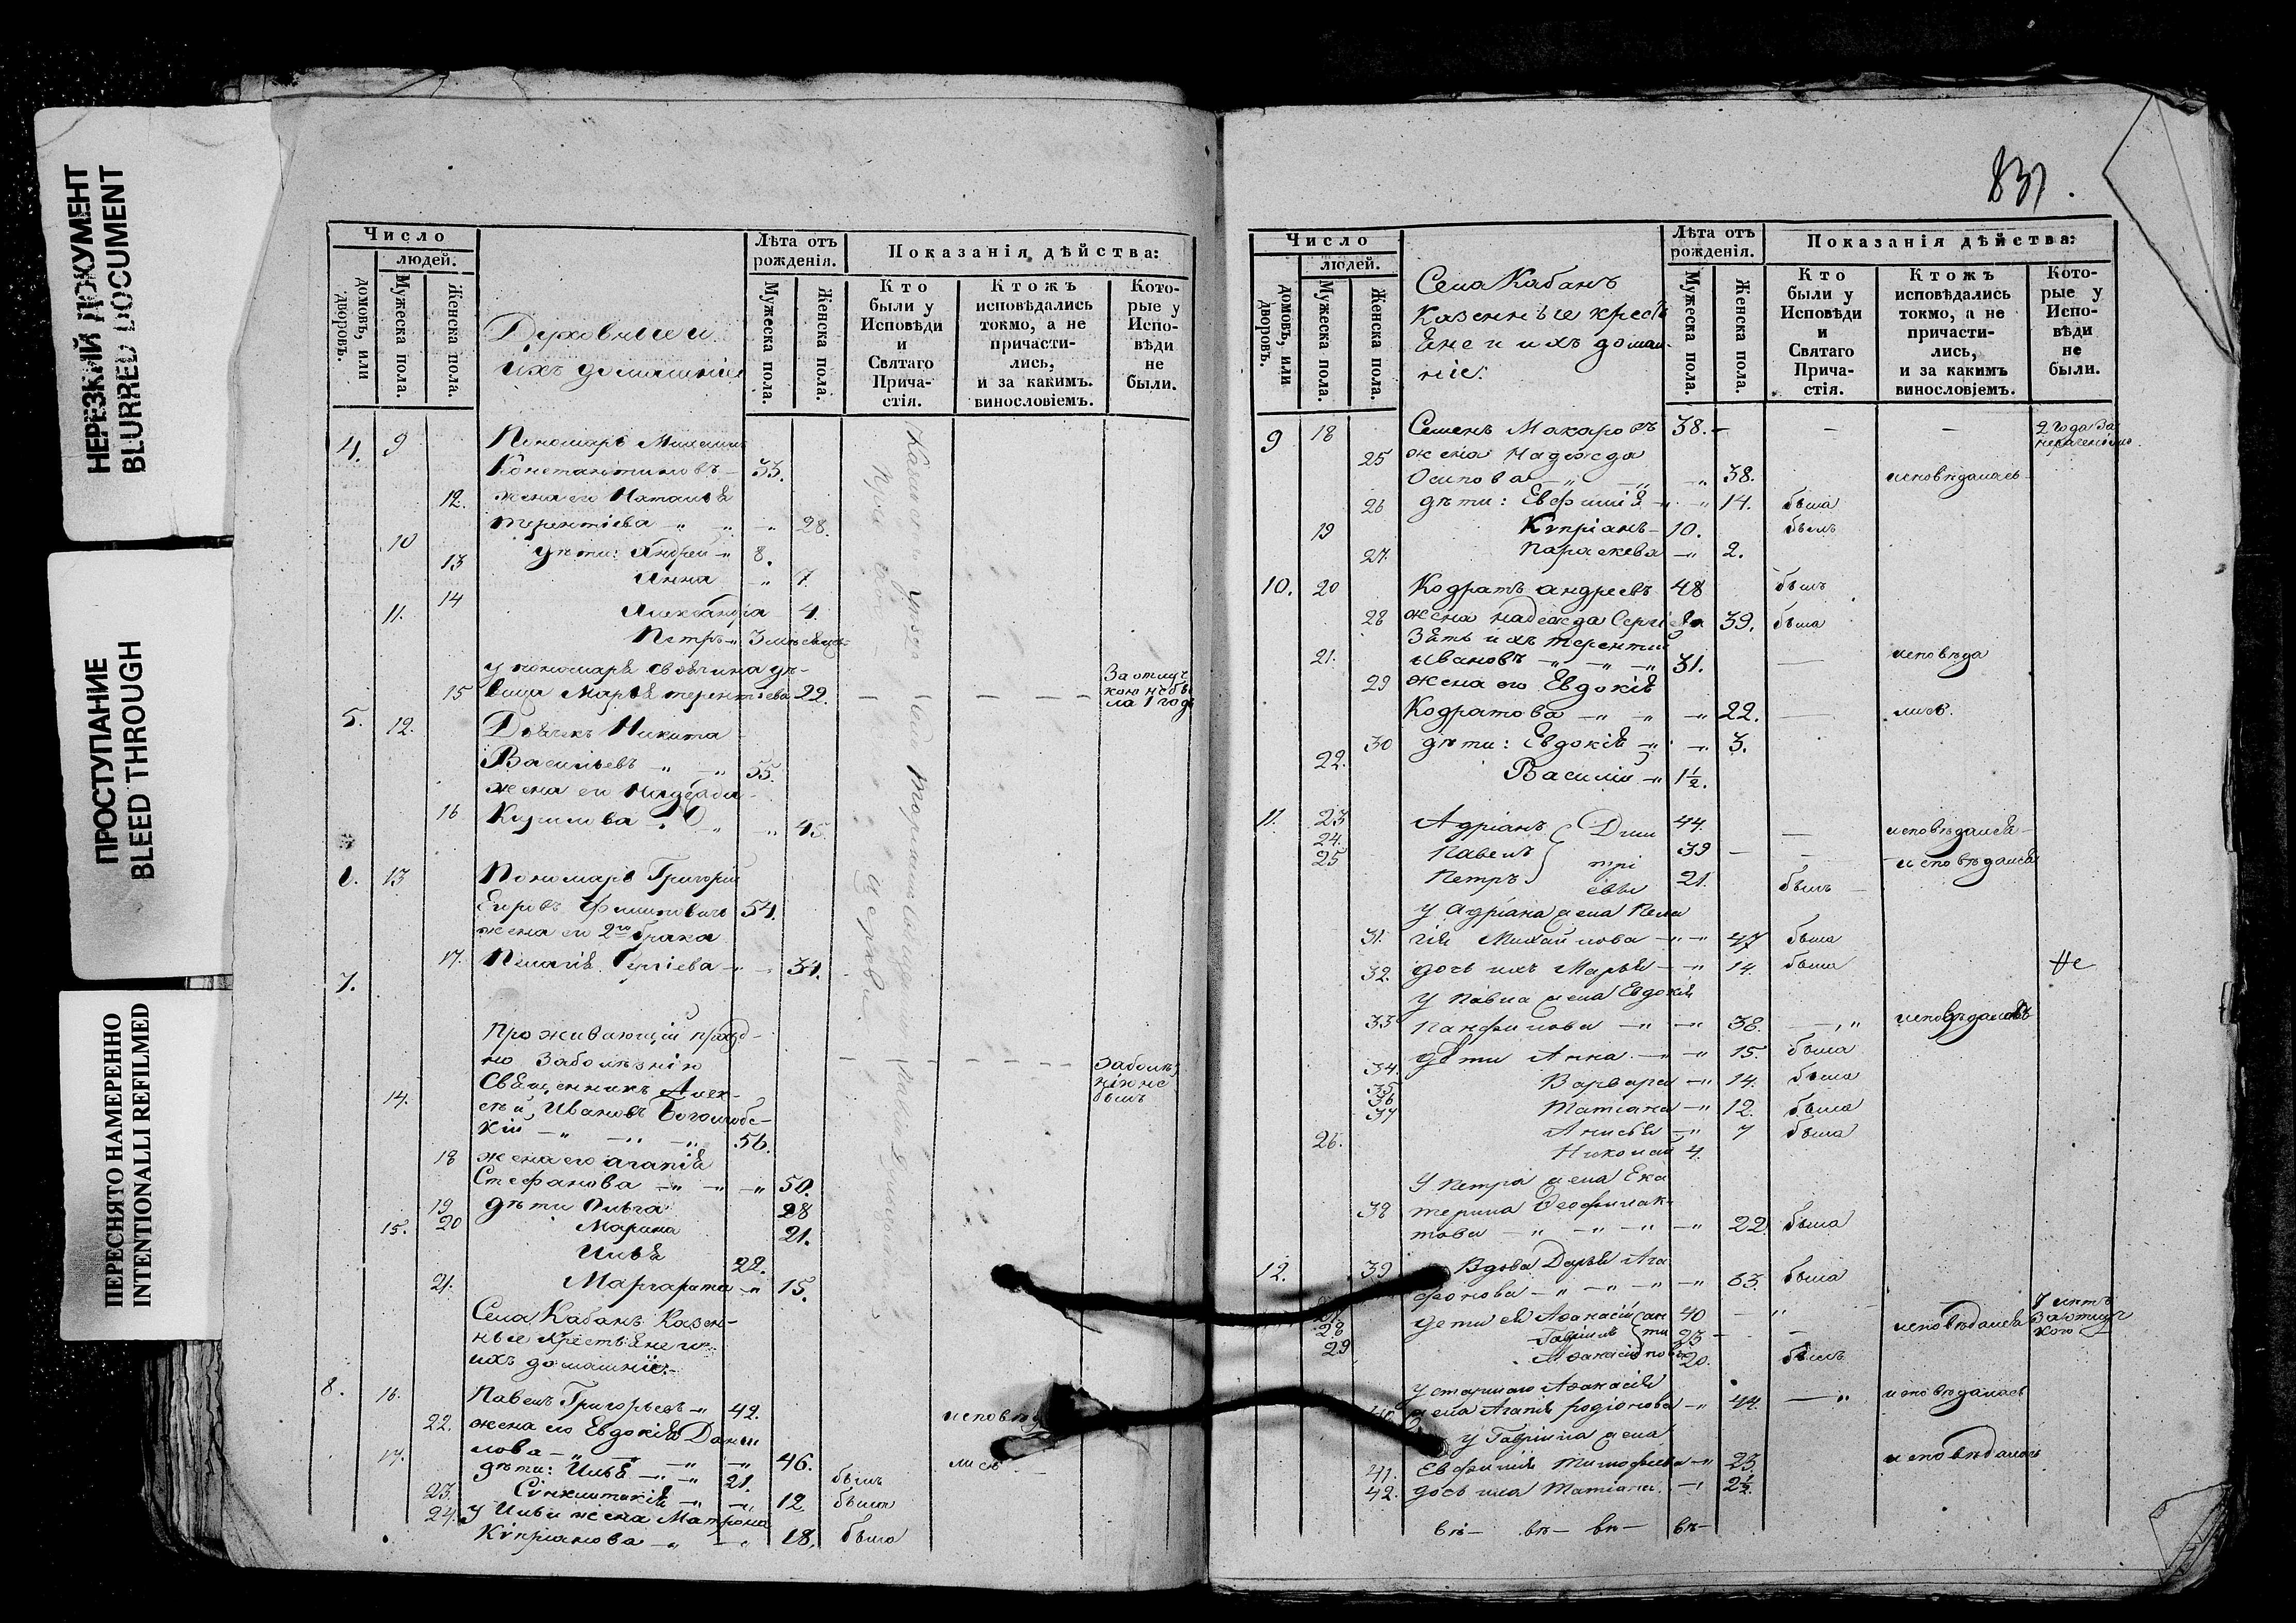 НЕРЕЗКИЙ ДОКУМЕНТ
BLURRED DOCUMENT
ПРОСТУПАНИЕ
BLEED THROUGH
ПЕРЕСНЯТО НАМЕРЕННО
INTENTIONALLI REFILMED
Число
людей.
домовъ, или дворовъ.
Мужеска пола.
Женска пола.
Духовные и
ихъ домашніе
Лѣта отъ рожденія.
Мужеска пола.
Женска пола.
Показанія дѣйства:
Кто были у Исповѣди и Святаго Прича-стія.
Ктожъ исповѣдались токмо, а не причасти-лись, и за какимъ. винословіемъ.
Кото-рые у Испо-вѣди не были.
4. 9 Пономарь
Константиновъ — 33.
12. жена его Наталья
Терентіева — „ „ 28.
10 дѣти: Андрей „ 8.
13 Анна „ 7
14 Александра 4.
11. Петръ „
у пономаря своячина дѣ-
15 вица Марья Терентіева 22. — — — — За отлуч
кою не бы
ла 1 годъ
5. 12. Дьячекъ Никита
Васильевъ „ „ 55.
жена его Надежда
16 Кирилова „ „ 45.
6. 13 Пономарь Григорій
Егоровъ Филиповичъ 54.
жена его 2го брака
17. Пелагія Сергіева „ 34.
7.
Проживающій
по заболѣзнію — — — — заболѣз
Священникъ Алек- нію не
14. сѣй Ивановъ Боголюбс- былъ
кій „ „ „ 56.
18 жена его Агапія
Стефанова „ „ „ 50.
19 дѣти Ольга 28
15. 20 Марина 21.
Илья 22.
21. Маргарита „ 15.
Села Кабанъ Казен-
ные крестьяне и
ихъ домашніе.
8. 16. Павелъ Григорьевъ „ 42. исповѣд
22. жена его Евдокія Дани
лова „ „ „ 46. лись
17. дѣти: Илья „ „ 21. былъ
23. Сінклитикія „ „ 12 была
24. У Ильи жена Матрона
Кѵпріанова „ „ 18. была
837.
Число
людей.
домовъ, или дворовъ.
Мужеска пола.
Женска пола.
Села Кабанъ
Казенные крестья
яне и ихъ домаш-
ніе.
Лѣта отъ рожденія.
Мужеска пола.
Женска пола.
Показанія дѣйства:
Кто были у Исповѣди и Святаго Прича-стія.
Ктожъ исповѣдались токмо, а не причасти-лись, и за какимъ винословіемъ.
Кото-рые у Испо-вѣди не были.
9 18 Семенъ Макаровъ 38. — — — 2 года за
25 жена Надежда
Осипова „ „ „ 38. исповѣдалась
26 дѣти: Евфимія „ „ 14. была
19 Кѵпріанъ — 10. былъ
27. Параскева „ 2.
10. 20 Кодратъ Андреевъ 48 былъ
28 жена Надежда Сергіева 39. была
Зять ихъ Терентій
21. Ивановъ „ „ „ 31. — исповѣда
29 жена его Евдокія
Кодратова „ „ „ 22. — лись.
30 дѣти: Евдокія „ „ 3.
22. Василій „ 1½.
11. 23 Адріанъ Дми 44. — исповѣдался —
24. Павелъ трі 39 — — исповѣдался
25 Петръ евы 21. былъ —
У Адріана жена Пела
31. гія Михайлова „ „ 47 была
32. дочь ихъ Марья „ „ 14. была Не
У Павла жена Евдокія
33 Панфилова „ „ 38. — „ исповѣдалась
34. дѣти Анна „ „ 15. была
35 Варвара „ 14. была
36 Татіана „ 12. была
37 Анисья „ 7 была
26. Николай 4.
У Петра жена Ека
38 терина Феофилак
това „ „ „ „ 22. была
12. 39 Вдова Дарья Ага
фонова „ „ „ 63. была
дети ея Афанасій Ан 40 — „ — 7 лѣтъ
28 Гавріилъ ти 23 — — исповѣдался За отлуч
29 Афанасій повы 20. былъ кою
У старшаго Афанасія
40 жена Агапія Родіонова „ 44. — „ исповѣдалась
У Гавріила жена
41. Евфимія Тимофеева „ 23 исповѣдалась
42. дочь ихъ Татіана — 2½.